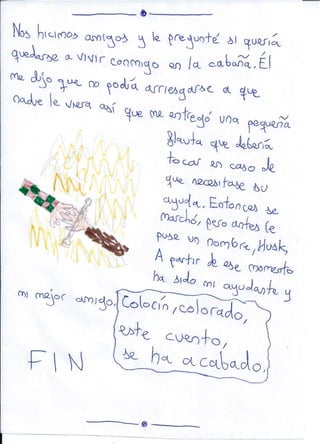 Nos hicimos amigos y le pregunté si quería
quedarse a vivir conmigo en la cabaña. Él
me dijo que no podía arriesgarse a que
nadie le viera así que me entregó una pequeña
flauta que debería
tocar en caso de
que necesitase su
ayuda. Entonces se
marchó, pero antes le
puse un nombre, Husk,
A partir de ese momento
ha sido mi ayudante y
mi mejor amigo.
Colocín, colorado,
este cuento,
se ha acabado.
FIN